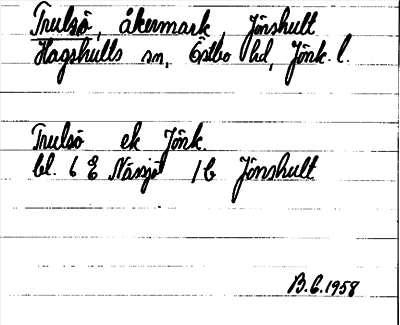 Trulsö, åkermark, Jönshult
Hagshults sn, Östbo hd, Jönk. l.
Trulsö ek Jönk.
bl. 6 E Nässjö 1 b Jönshult
B.G. 1958